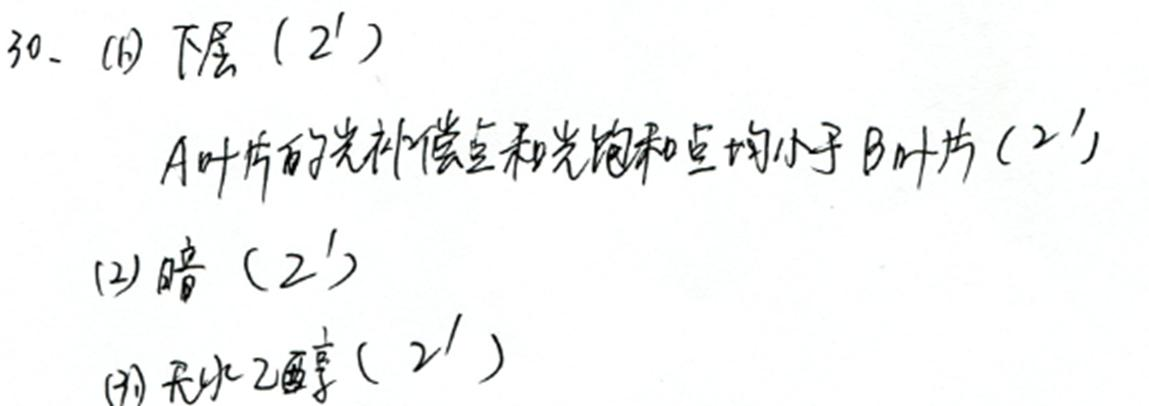 30. (1) 下层 (2')
A叶片的光补偿点和光饱和点均小于B叶片 (2')
(2) 暗 (2')
(3) 无水乙醇 (2')